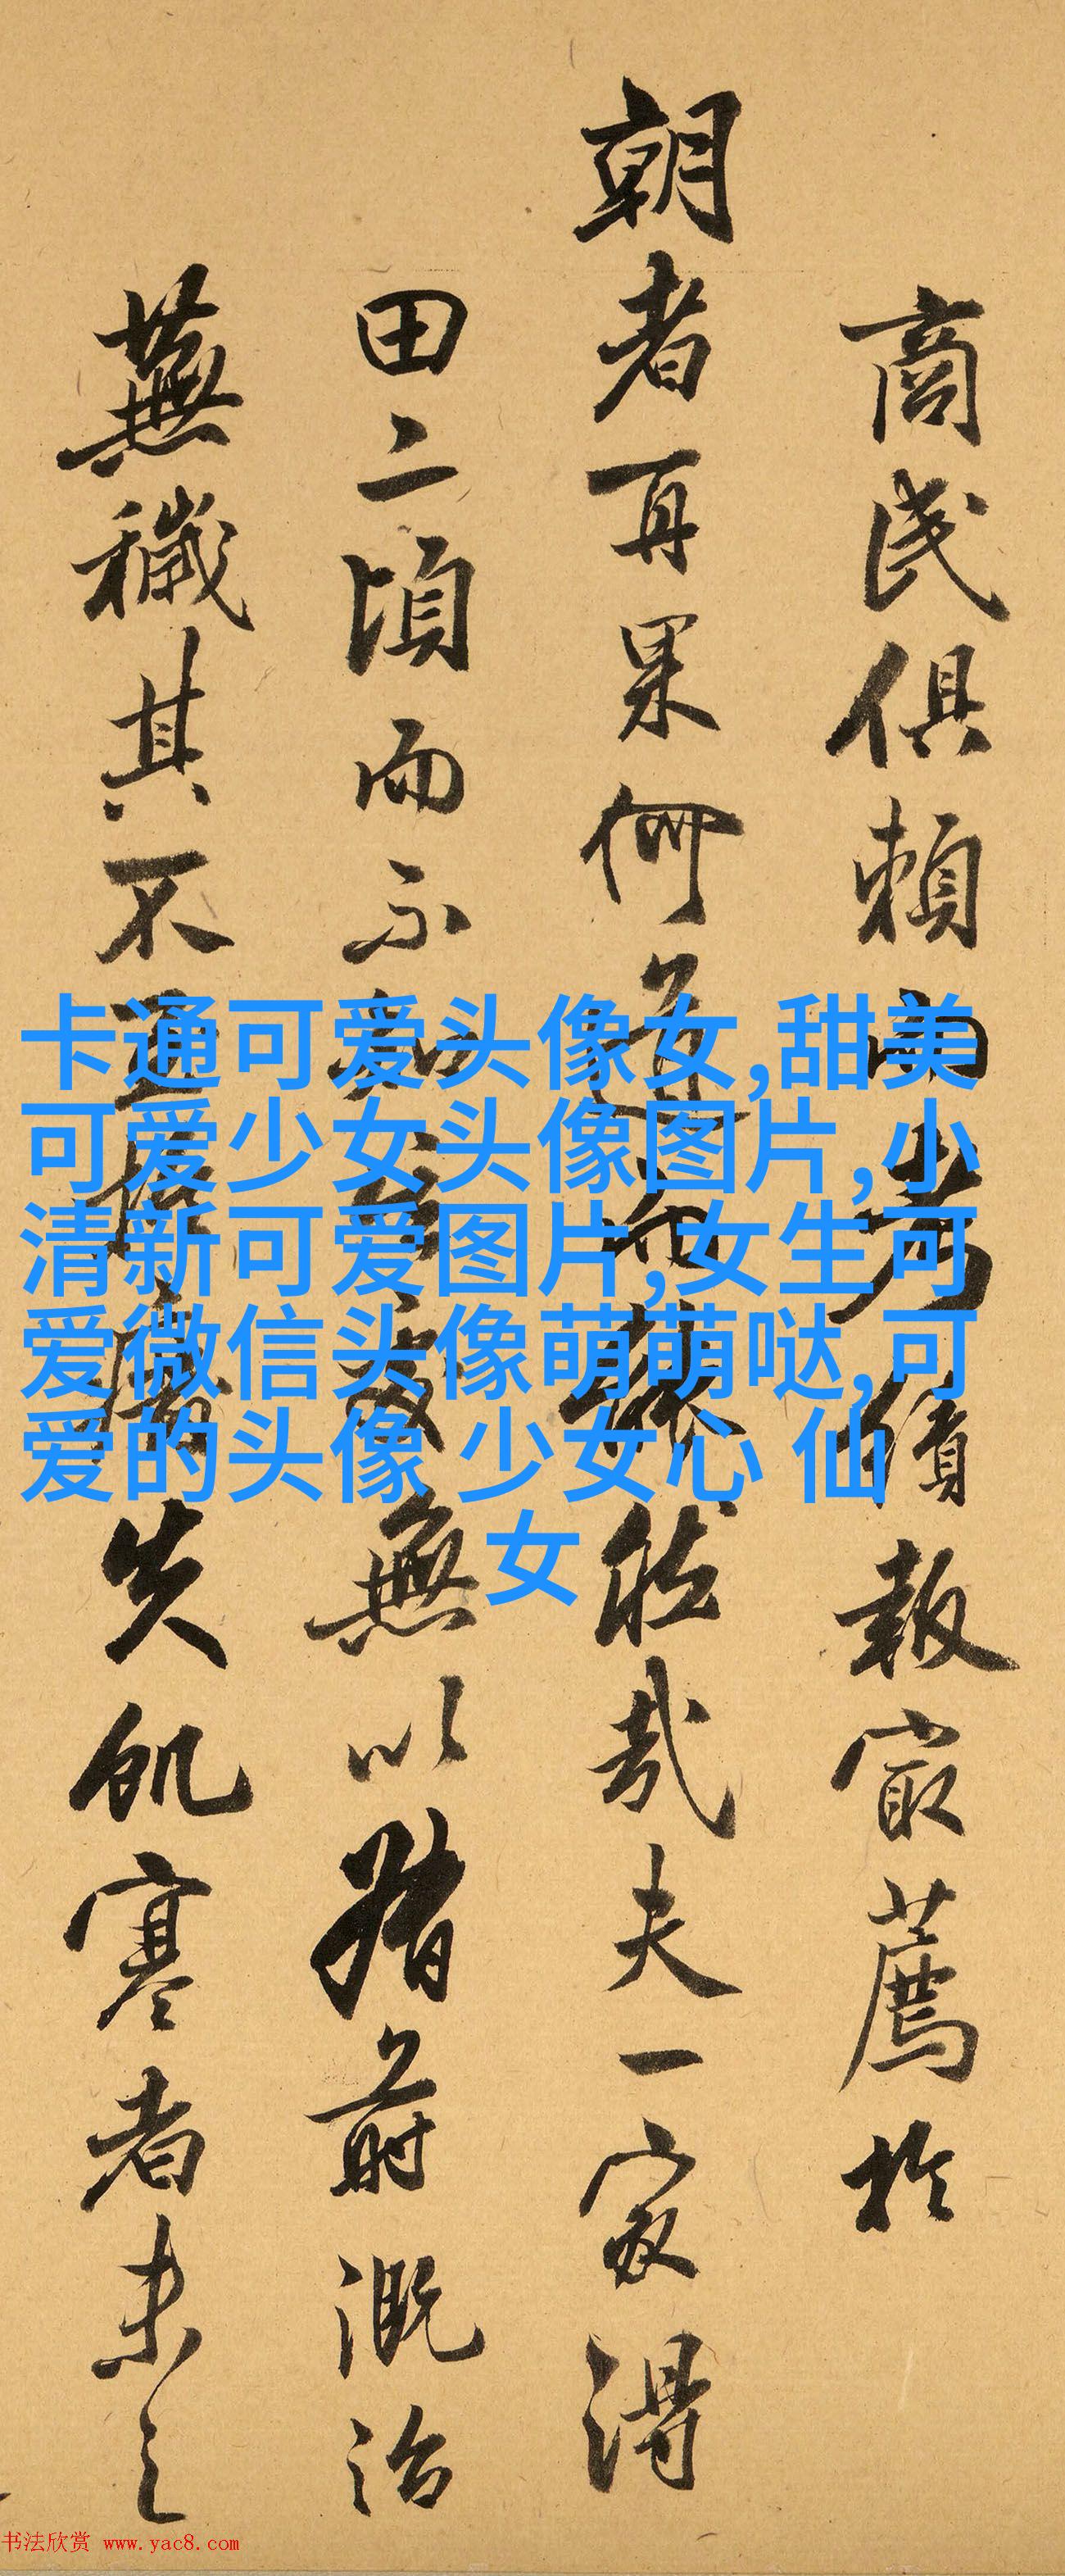 商民俱賴由考績報寂薦於
朝者再果何道而臻此哉夫一家得
田二頃而不知無以猪前溉治
蕪穢其不失飢寒者未之
卡通可爱头像女,甜美
可爱少女头像图片,小
清新可爱图片,女生可
爱微信头像萌萌哒,可
爱的头像 少女心 仙
女
书法欣赏 www.yac8.com